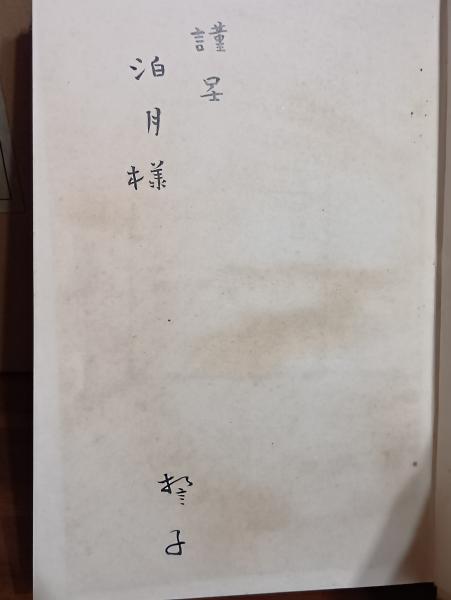 謹呈
泊月様
誓子